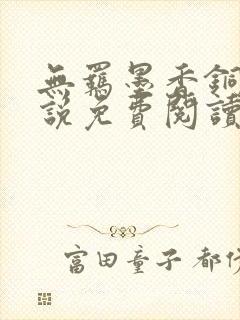 無羈墨香銅
說免費閱讀
富田童子 都市